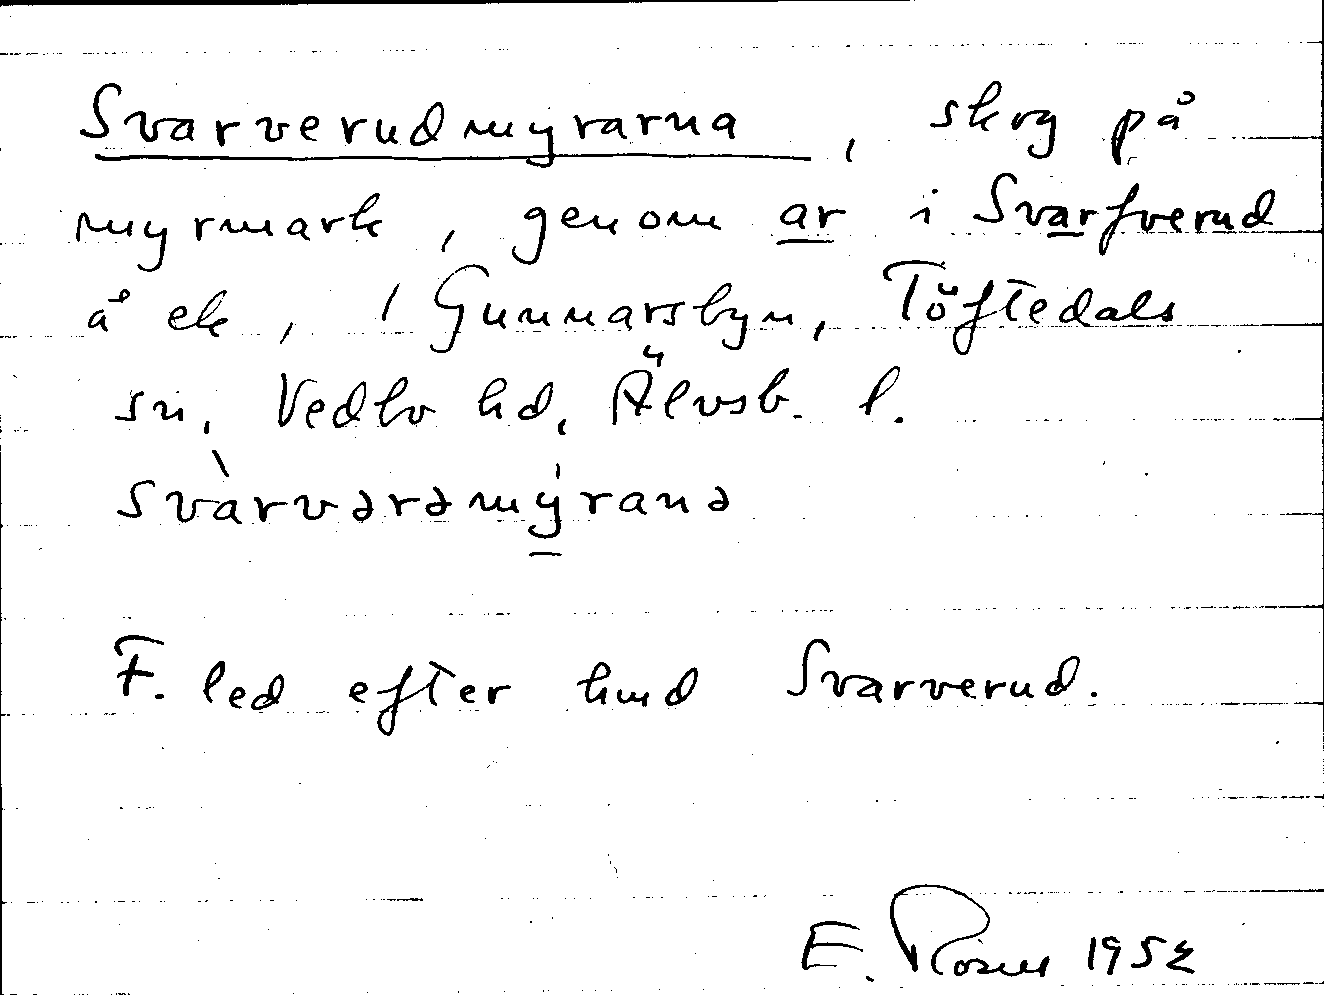 Svarverudmyrarna, skog på
myrmark, genom ar i Svarfverud
å ek, / Gunnarsbyn, Töftedals
sn, Vedbo hd, Älvsb. l.
svàrvərəmýranə
F. led efter hmd Svarverud.
E. Rosell 1952